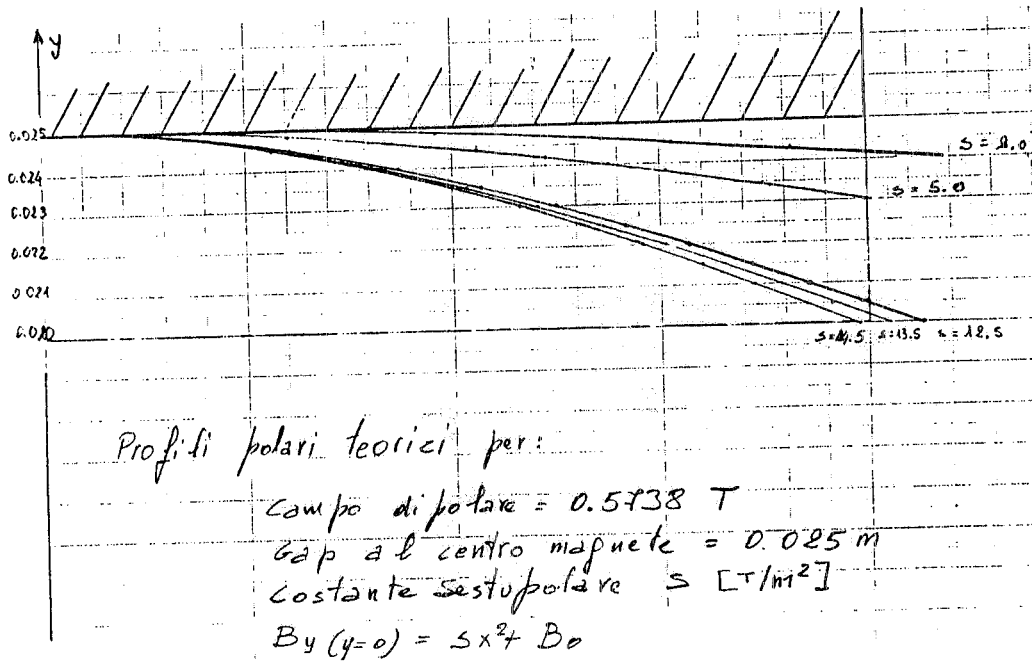 y
0.025
0.024
0.023
0.022
0.021
0.020
s = 5.0
s=14.5 s=13.5 s=12.5
Profili polari teorici per:
campo dipolare = 0.5738 T
Gap al centro magnete = 0.025 m
Costante Sestupolare S [T/m²]
By (y=0) = Sx² + Bo